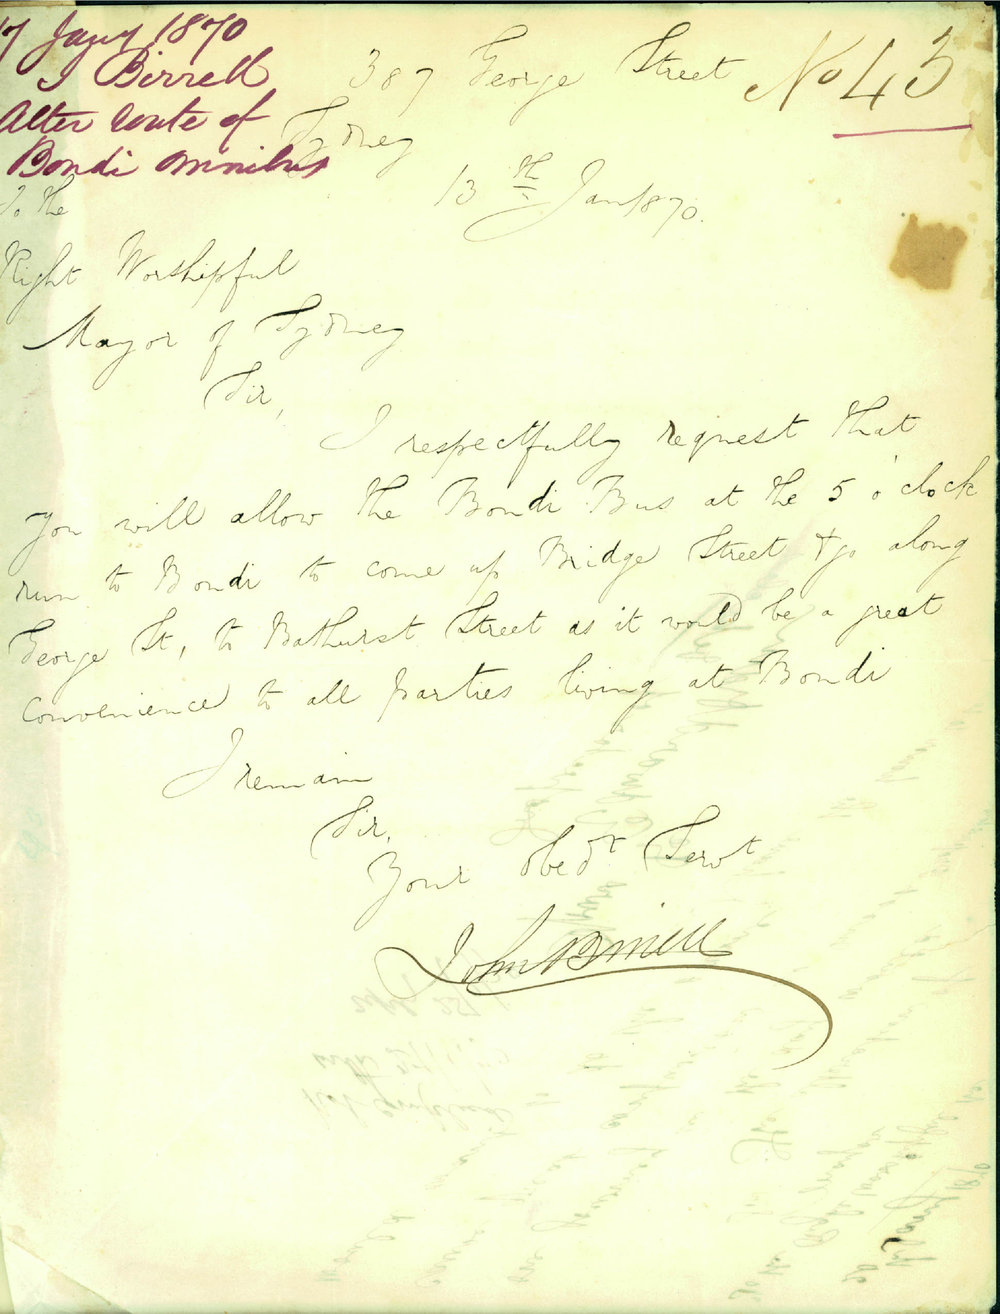 17 Jany 1870
J Birrell
Alter route of
Bondi omnibus
No 43
387 George Street
Sydney
13th Jan 1870.
To the
Right Worshipful
Mayor of Sydney
Sir,
I respectfully request that
you will allow the Bondi Bus at the 5 o'clock
run to Bondi to come up Bridge Street & go along
George St, to Bathurst Street as it would be a great
convenience to all parties living at Bondi
I remain
Sir,
Your obedt Servt
John Birrell